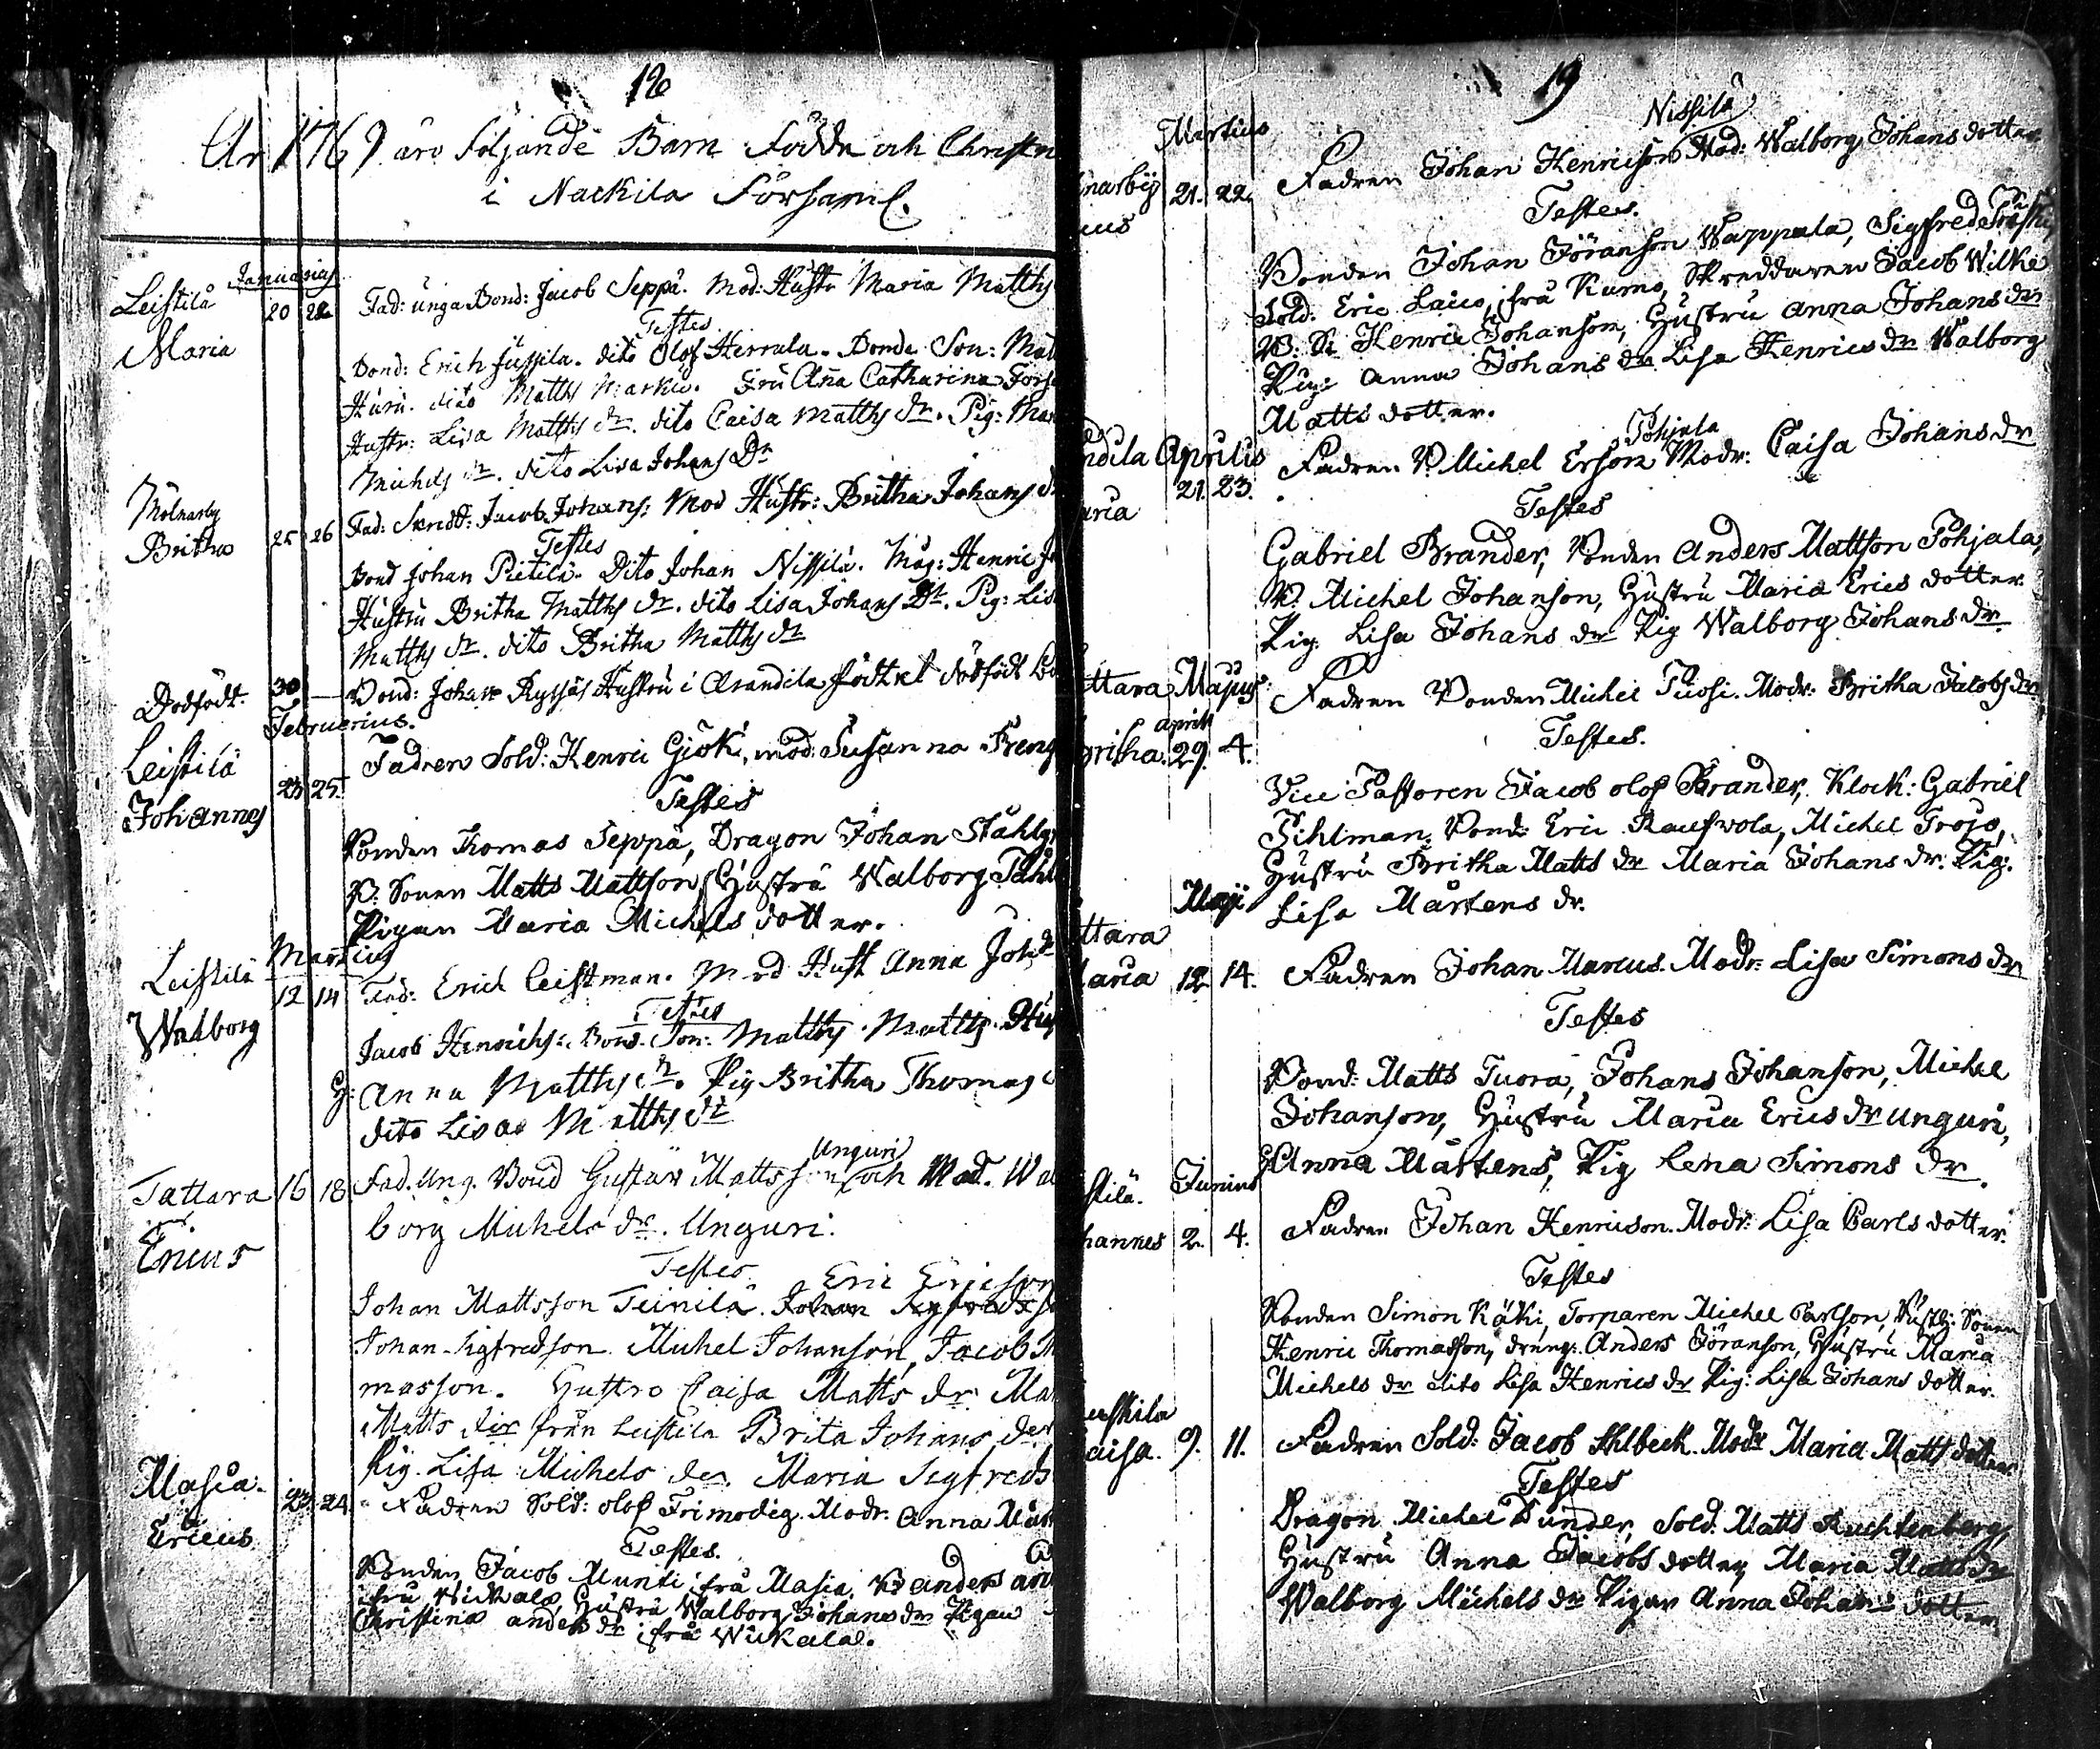 12
År 1769 äro följande Barn födde och Christn
i Nackila Församl.
Januarius
Leistilä 20 22 Fad: unga Bond: Jacob Seppä. Mod: Hustr Maria Matths
Maria
Testes
Bond: Erich Jussila. dito Olof Herrala. Bonde Son: Mat
Huru. dito Matths Marku. Fru Anna Catharina Fors
Hustr: Lisa Matths dr. dito Caisa Matths dr. Pig: Mar
Michels dr. dito Lisa Johans Dr
Molnarby
Britha 25 26 Fad: Skredd: Jacob Johans: Mod Hustr: Britha Johans d
Testes
Bond Johan Pietilä. Dito Johan Nissilä. Måg: Henric J
Hustru Britha Matths dr. dito Lisa Johans Dr. Pig: Lis
Matths dr. dito Britha Matths dr
Dödfödt. 30 — Bond: Johan Ryssäs Hustru i Arandila födt et dödfödt
Februarius.
Leistilä 23 25. Fadren Sold: Henric Giök, mod: Susanna Freng
Johannes
Testes
Bonden Thomas Seppä, Dragon Johan Stählg
B. Sonen Matts Mattson, Hustru Walborg Påhl
Pigan Maria Michels dotter.
Martius
Leistilä 12 14 Fad: Erich Leistman. Mod Hust Anna Joh dr
Walborg
Testes
Jacob Henrichs: Bond. Son: Matths Matths. Hu
H: Anna Matths dr. Pig Britha Thomas
dito Lisa Matths dr
Unguri
Tattara 16 18 Fad. Ung. Bond Gustav Mattsson och Mod. Wal
Ericus
borg Michels dr. Unguri.
Testes
Eric Ericson
Johan Mattsson Teinilä. Johan Sigfreds
Johan Sigfredson Michel Johanson, Jacob
masson. Hustro Caisa Matts dr. Ma
Matts dr från Leistila Brita Johans der
Pig. Lisa Michels der Maria Sigfreds
Masia. 23 24 Fadren Sold: Olof Frimodig. Modr. Anna Mår
Ericus.
Testes.
Bonden Jacob Munti frå Masia, B Anders
frå Wickala, Hustru Walborg Johans dr Pigan
Christina anders dr ifrå Wickala.
19
Martius
Nissilä
Fadren Johan Henricson Mod: Walborg Johans dotter
narby 21. 22.
cus
Testes.
Bonden Johan Jöranson Wappula, Sigfred
Sold. Eric Laico, ifrå Kumo, Skreddaren Jacob Wilke
B: So Henric Johanson, Hustru Anna Johans dr
Pig: Anna Johans dr Lisa Henrics dr Walborg
Matts dotter.
Pohjala
ndila Aprilis Fadren B. Michel Erson Modr: Caisa Johans dr
aria 21. 23.
Testes
Gabriel Brander, Bonden Anders Mattson Pohjala,
B. Michel Johanson, Hustru Maria Erics dotter
Pig. Lisa Johans dr Pig Walborg Johans dr.
ttara Majus Fadren Bonden Michel Tuosi. Modr: Britha Jacobs dr
April
ritha. 29. 4.
Testes.
Vice Pastoren Jacob Olof Brander, Klock: Gabriel
Fihlman, Bond: Eric Raukvola, Michel Trojo,
Hustru Britha Matts dr Maria Johans dr. Pig:
Lisa Mårtens dr.
Maji
ttara
aria 12 14. Fadren Johan Marcus. Modr: Lisa Simons dr
Testes
Bond: Matts Tuora, Johans Johanson, Michel
Johanson, Hustru Maria Erics dr Unguri,
H Anna Mårtens, Pig Lena Simons dr.
stilä. Junius
hannes 2. 4. Fadren Johan Henricson. Modr: Lisa Carls dotter.
Testes
Bonden Simon Käki, Torparen Michel Carlson, Rustb: Sonen
Henric Thomasson, dräng: Anders Jöranson, Hustru Maria
Michels dr dito Lisa Henrics dr Pig: Lisa Johans dotter.
uskila
aisa. 9. 11. Fadren Sold: Jacob Ahlbeck. Modr Maria Matts dotter
Testes
Dragon Michel Dunder, Sold. Matts Ruchtenberg,
Hustru Anna Jacobs dotter, Maria Matts dr
Walborg Michels dr Pigan Anna Johans dotter.